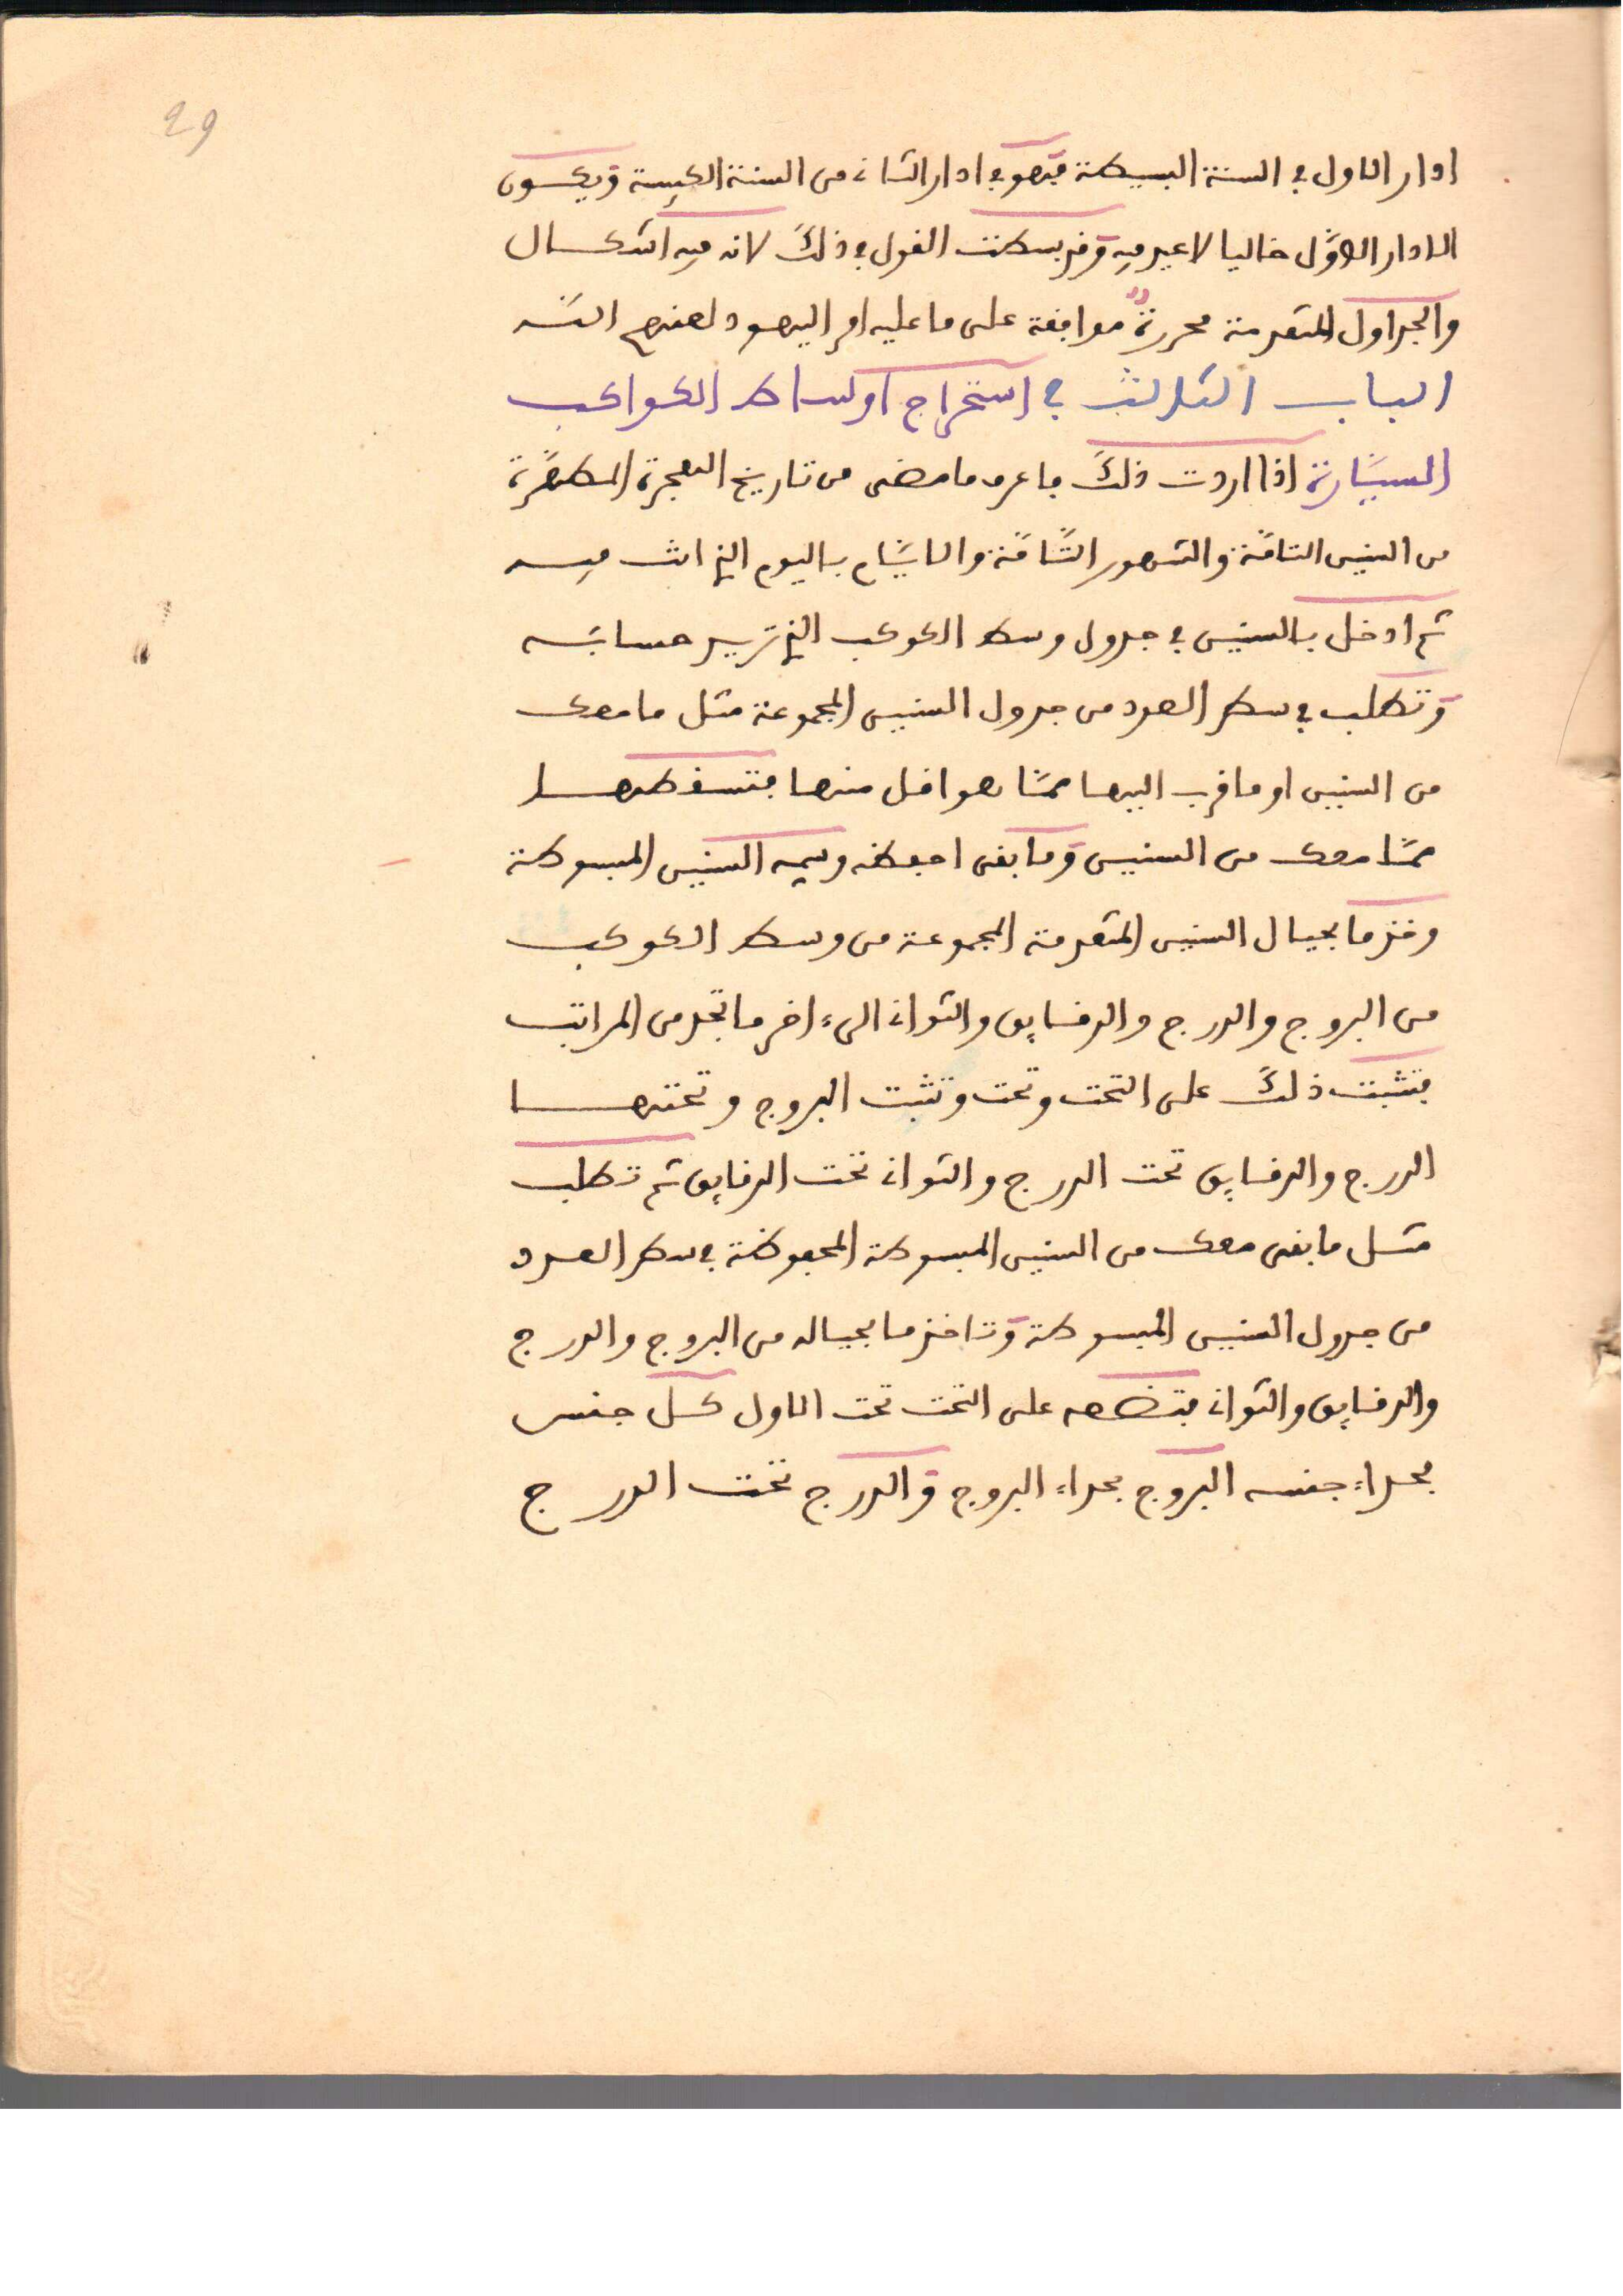 29
ادار الاول في السنة البسيطة فهو في ادار الثاني من السنة الكبيسة ويكون
الادار الاوّل خاليا لا عيد فيه وقد بسطت القول في ذلك لانه فيه اشكال
والجداول المتقدمة محررة موافقة على ما عليه امر اليهود لعنهم الله
الباب الثالث في استخراج اوساط الكواكب
السيّارة اذا اردت ذلك فاعرف ما مضى من تاريخ الهجرة المطهّرة
من السنين التامّة والشهور التّامّة والايّام باليوم الذي انت فيه
ثم ادخل بالسنين في جدول وسط الكوكب الذي تريد حسابه
وتطلب في سطر العدد من جدول السنين المجموعة مثل ما معك
من السنين او ما قرب اليها ممّا هو اقل منها فتسقطها
ممّا معك من السنين وما بقى احفظه وسمه السنين المبسوطة
وخذ ما بحيال السنين المتقدمة المجموعة من وسط الكوكب
من البروج والدرج والدقايق والثواني الى اخر ما تجد من المراتب
فتثبت ذلك على التخت وتحت وتثبت البروج وتحتها
الدرج والدقايق تحت الدرج والثواني تحت الدقايق ثم تطلب
مثل ما بقى معك من السنين المبسوطة المحفوظة في سطر العدد
من جدول السنين المبسوطة وتاخذ ما بحياله من البروج والدرج
والدقايق والثواني فتضعه على التخت تحت الاول كل جنس
بحداء جنسه البروج بحداء البروج والدرج تحت الدرج